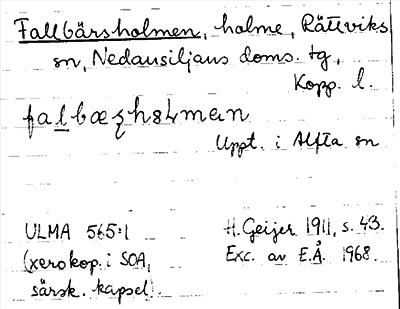 Fallbärsholmen, holme, Rättviks
sn, Nedansiljans doms. tg,
Kopp. l.
Uppt. i Alfta sn
ULMA 565:1
(xerokop. i SOA,
särsk. kapsel).
H. Geijer 1911, s. 43.
Exc. av E.Å. 1968.